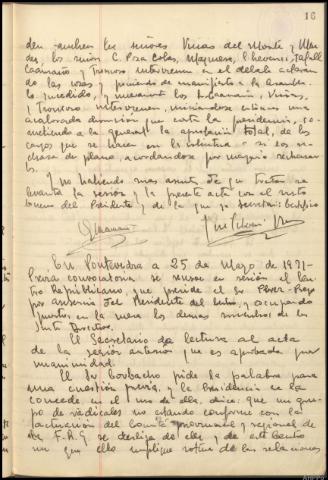 16
den tambien los señores Viñas del Monte y Men
des, los señores C. Poza Cobas,
Caamaño y Troncoso intervienen en el debate aclaran
do las cosas y poniendo de manifiesto a la Asamblea
lo sucedido, y
y Troncoso intervienen, iniciandose entonces una
acalorada discusion que corta la presidencia, so
metiendo a la general la aprobacion total, de los
cargos que se hacen en la o si los re
chasa de plano, acordandose por mayoria rechasar
los.
Y no habiendo mas asuntos de que tratar se
levanta la sesion y la presente acta con el visto
bueno del Presidente y de la que yo Secretario Certifico
En Pontevedra a 25 de Mayo de 1931
Previa convocatoria se reune en sesión el Cen
tro Republicano, que preside el Sr Perez
por ausencia del Presidente del mismo, y ocupando
puestos en la mesa los demas miembros de la
Junta Directiva.
El Secretario da lectura al acta
de la sesión anterior que es aprobada por
unanimidad.
El Sr Corbacho pide la palabra para
una cuestión previa, y la Presidencia se la
concede en el uso de ella, dice: que un gru
po de radicales no estando conforme con la
actuacion del Comite provincial y regional de
la F.R.G se desliga de ella y de este Centro
sin que ello implique rotura de las relaciones